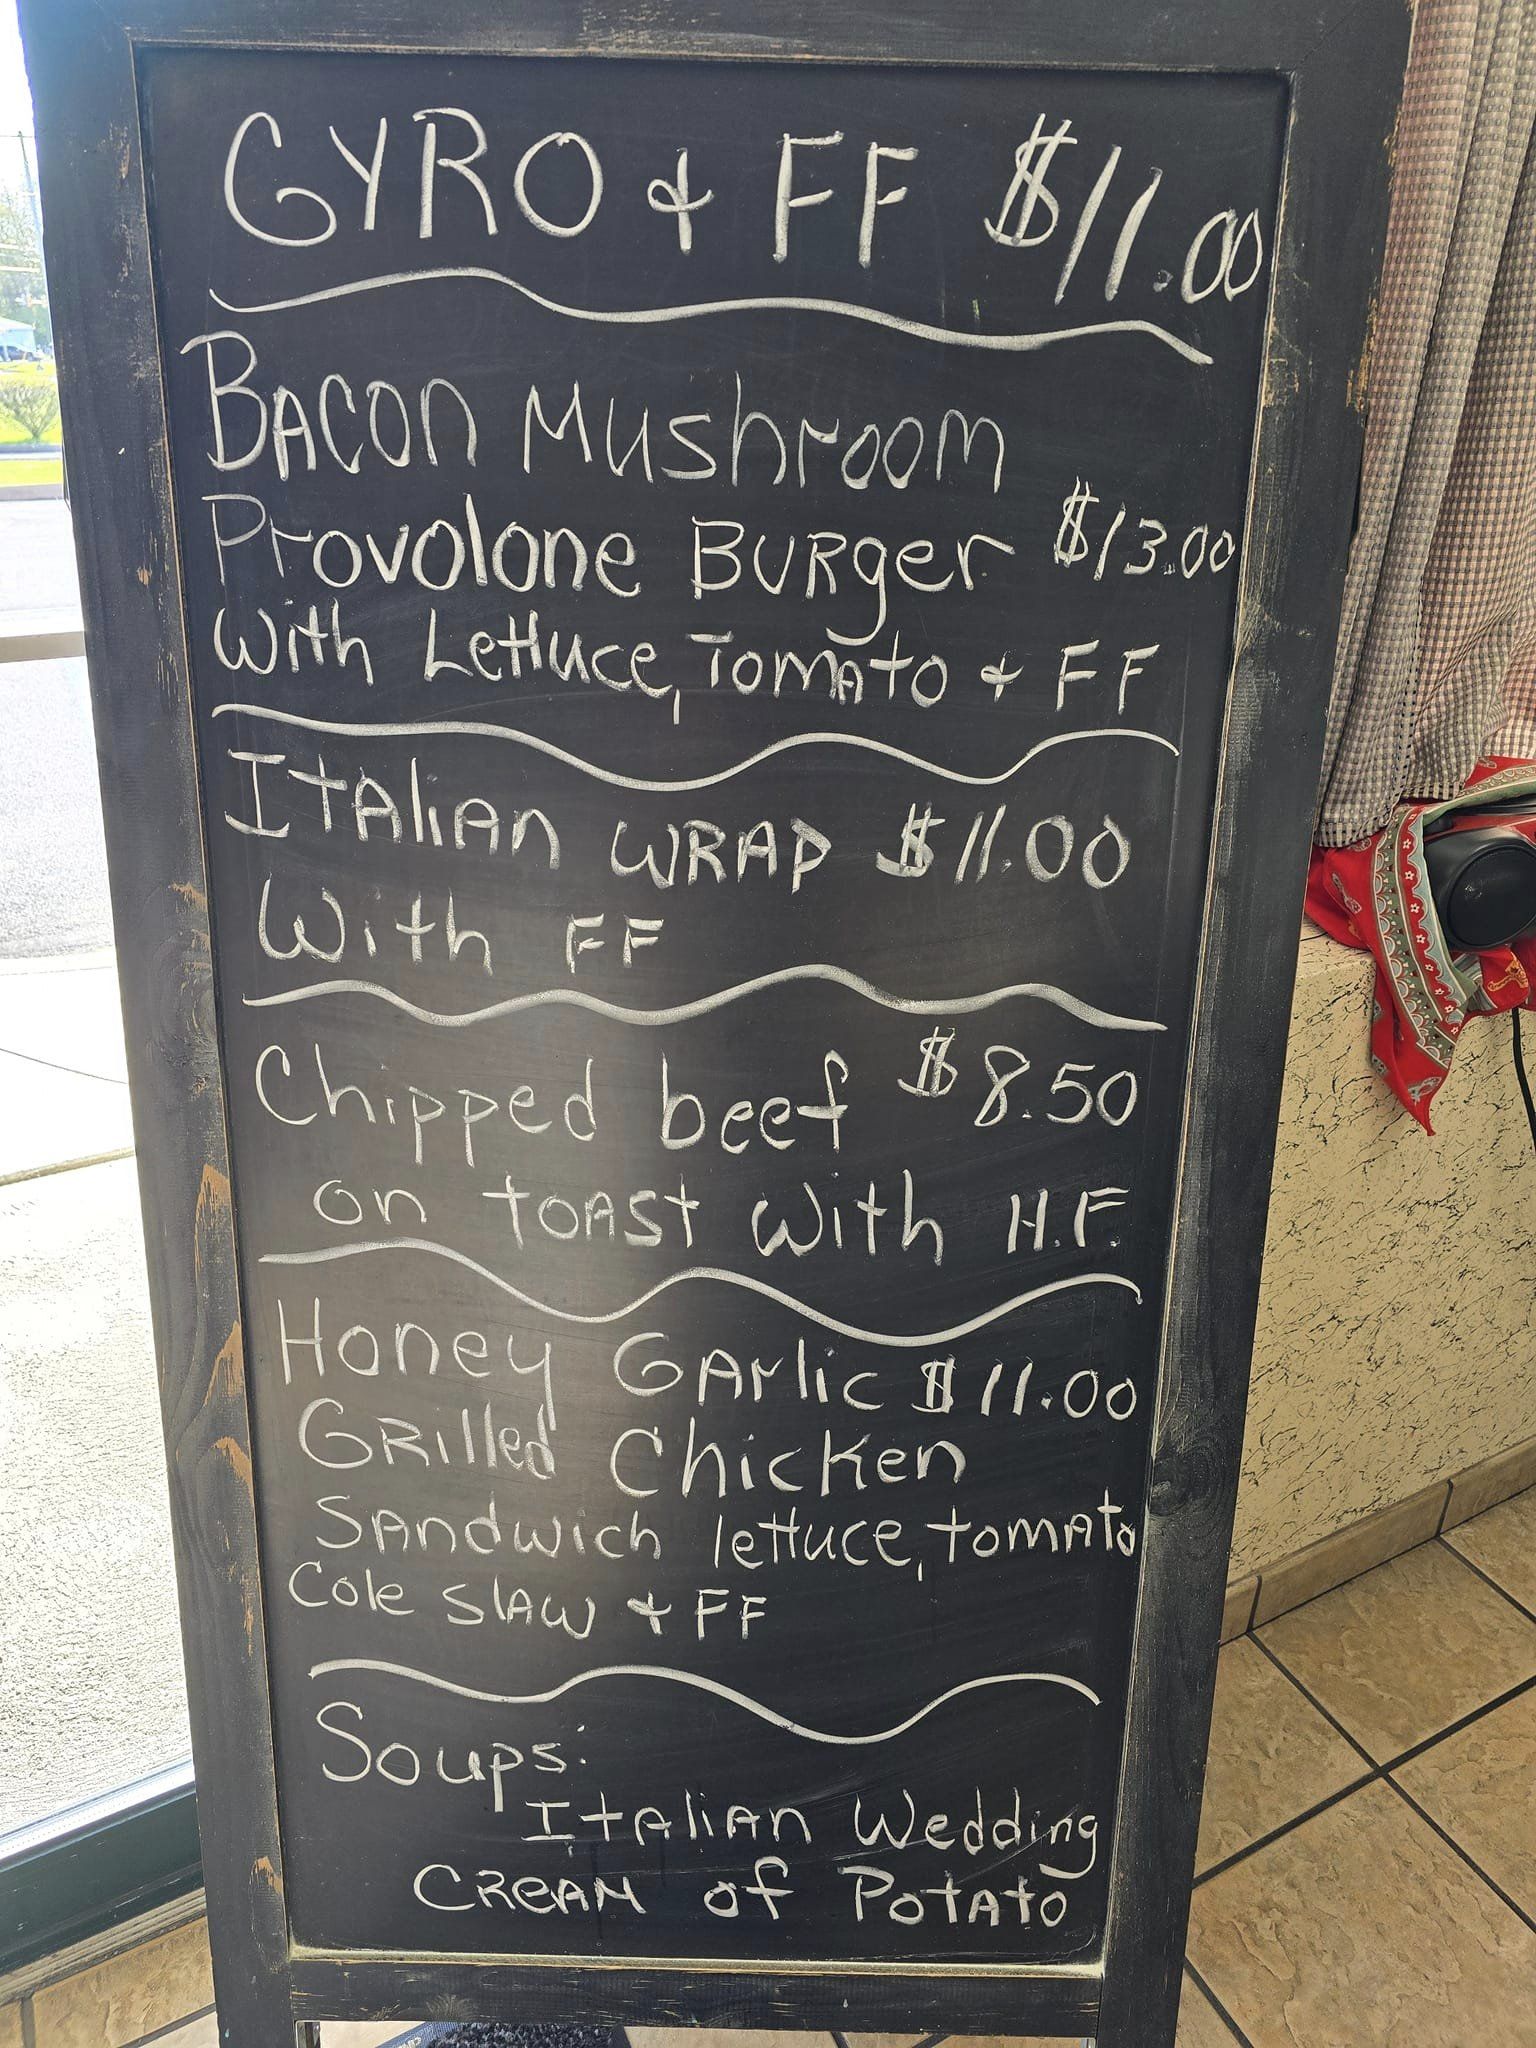 GYRO & FF $11.00
BACON Mushroom
Provolone BURger $13.00
With Lettuce, Tomato & FF
ITALIAN WRAP $11.00
With FF
Chipped beef $8.50
on TOAST With H.F.
Honey GArlic $11.00
GRilled Chicken
SAndwich lettuce, tomato
Cole slAW & FF
Soups:
ItAliAn Wedding
CREAM of Potato